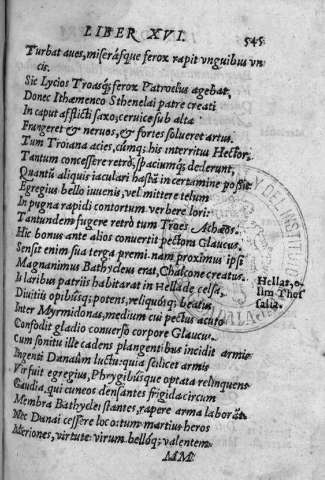 LIBER XVI.
545
Turbat aues, miserásque ferox rapit vnguibus vn
cis.
Sic Lycios Troasq; ferox Patroclus agebat,
Donec Ithæmeneo Sthenelai patre creati
In caput afflicti saxo, ceruice sub alta
Frangeret & neruos, & fortes solueret artus.
Tum Troiana acies, cumq; his interritus Hector,
Tantum concessere retrò, spaciumq; dederunt,
Quantũ aliquis iaculari hastã in certamine possit
Egregius bello iuuenis, vel mittere telum
In pugna rapidi contortum verbere lori.
Tantundem fugere retrò tum Troes Achæos.
Hic bonus ante alios conuertit pectora Glaucus.
Sensit enim sua terga premi. nam proximus ipsi
Magnanimus Bathycleus erat, Chalcone creatus.
Is laribus patriis habitarat in Hellade celsa,
Diuitiis opibúsq; potens, reliquósq; beatus
Inter Myrmidonas, medium cui pectus acuto
Confodit gladio conuerso corpore Glaucus.
Cum sonitu ille cadens plangentibus incidit armis
Ingenti Danaûm luctu: quia scilicet armis
Vir fuit egregius, Phrygibúsque optata relinquens
Gaudia, qui cuneos densantes frigida circum
Membra Bathyclei stantes, rapere arma laborãt.
Nec Danai cessere loco: tum martius heros
Meriones, virtute virum bellóq; valentem
Hellas, o-
lim Thes
salia.
MM